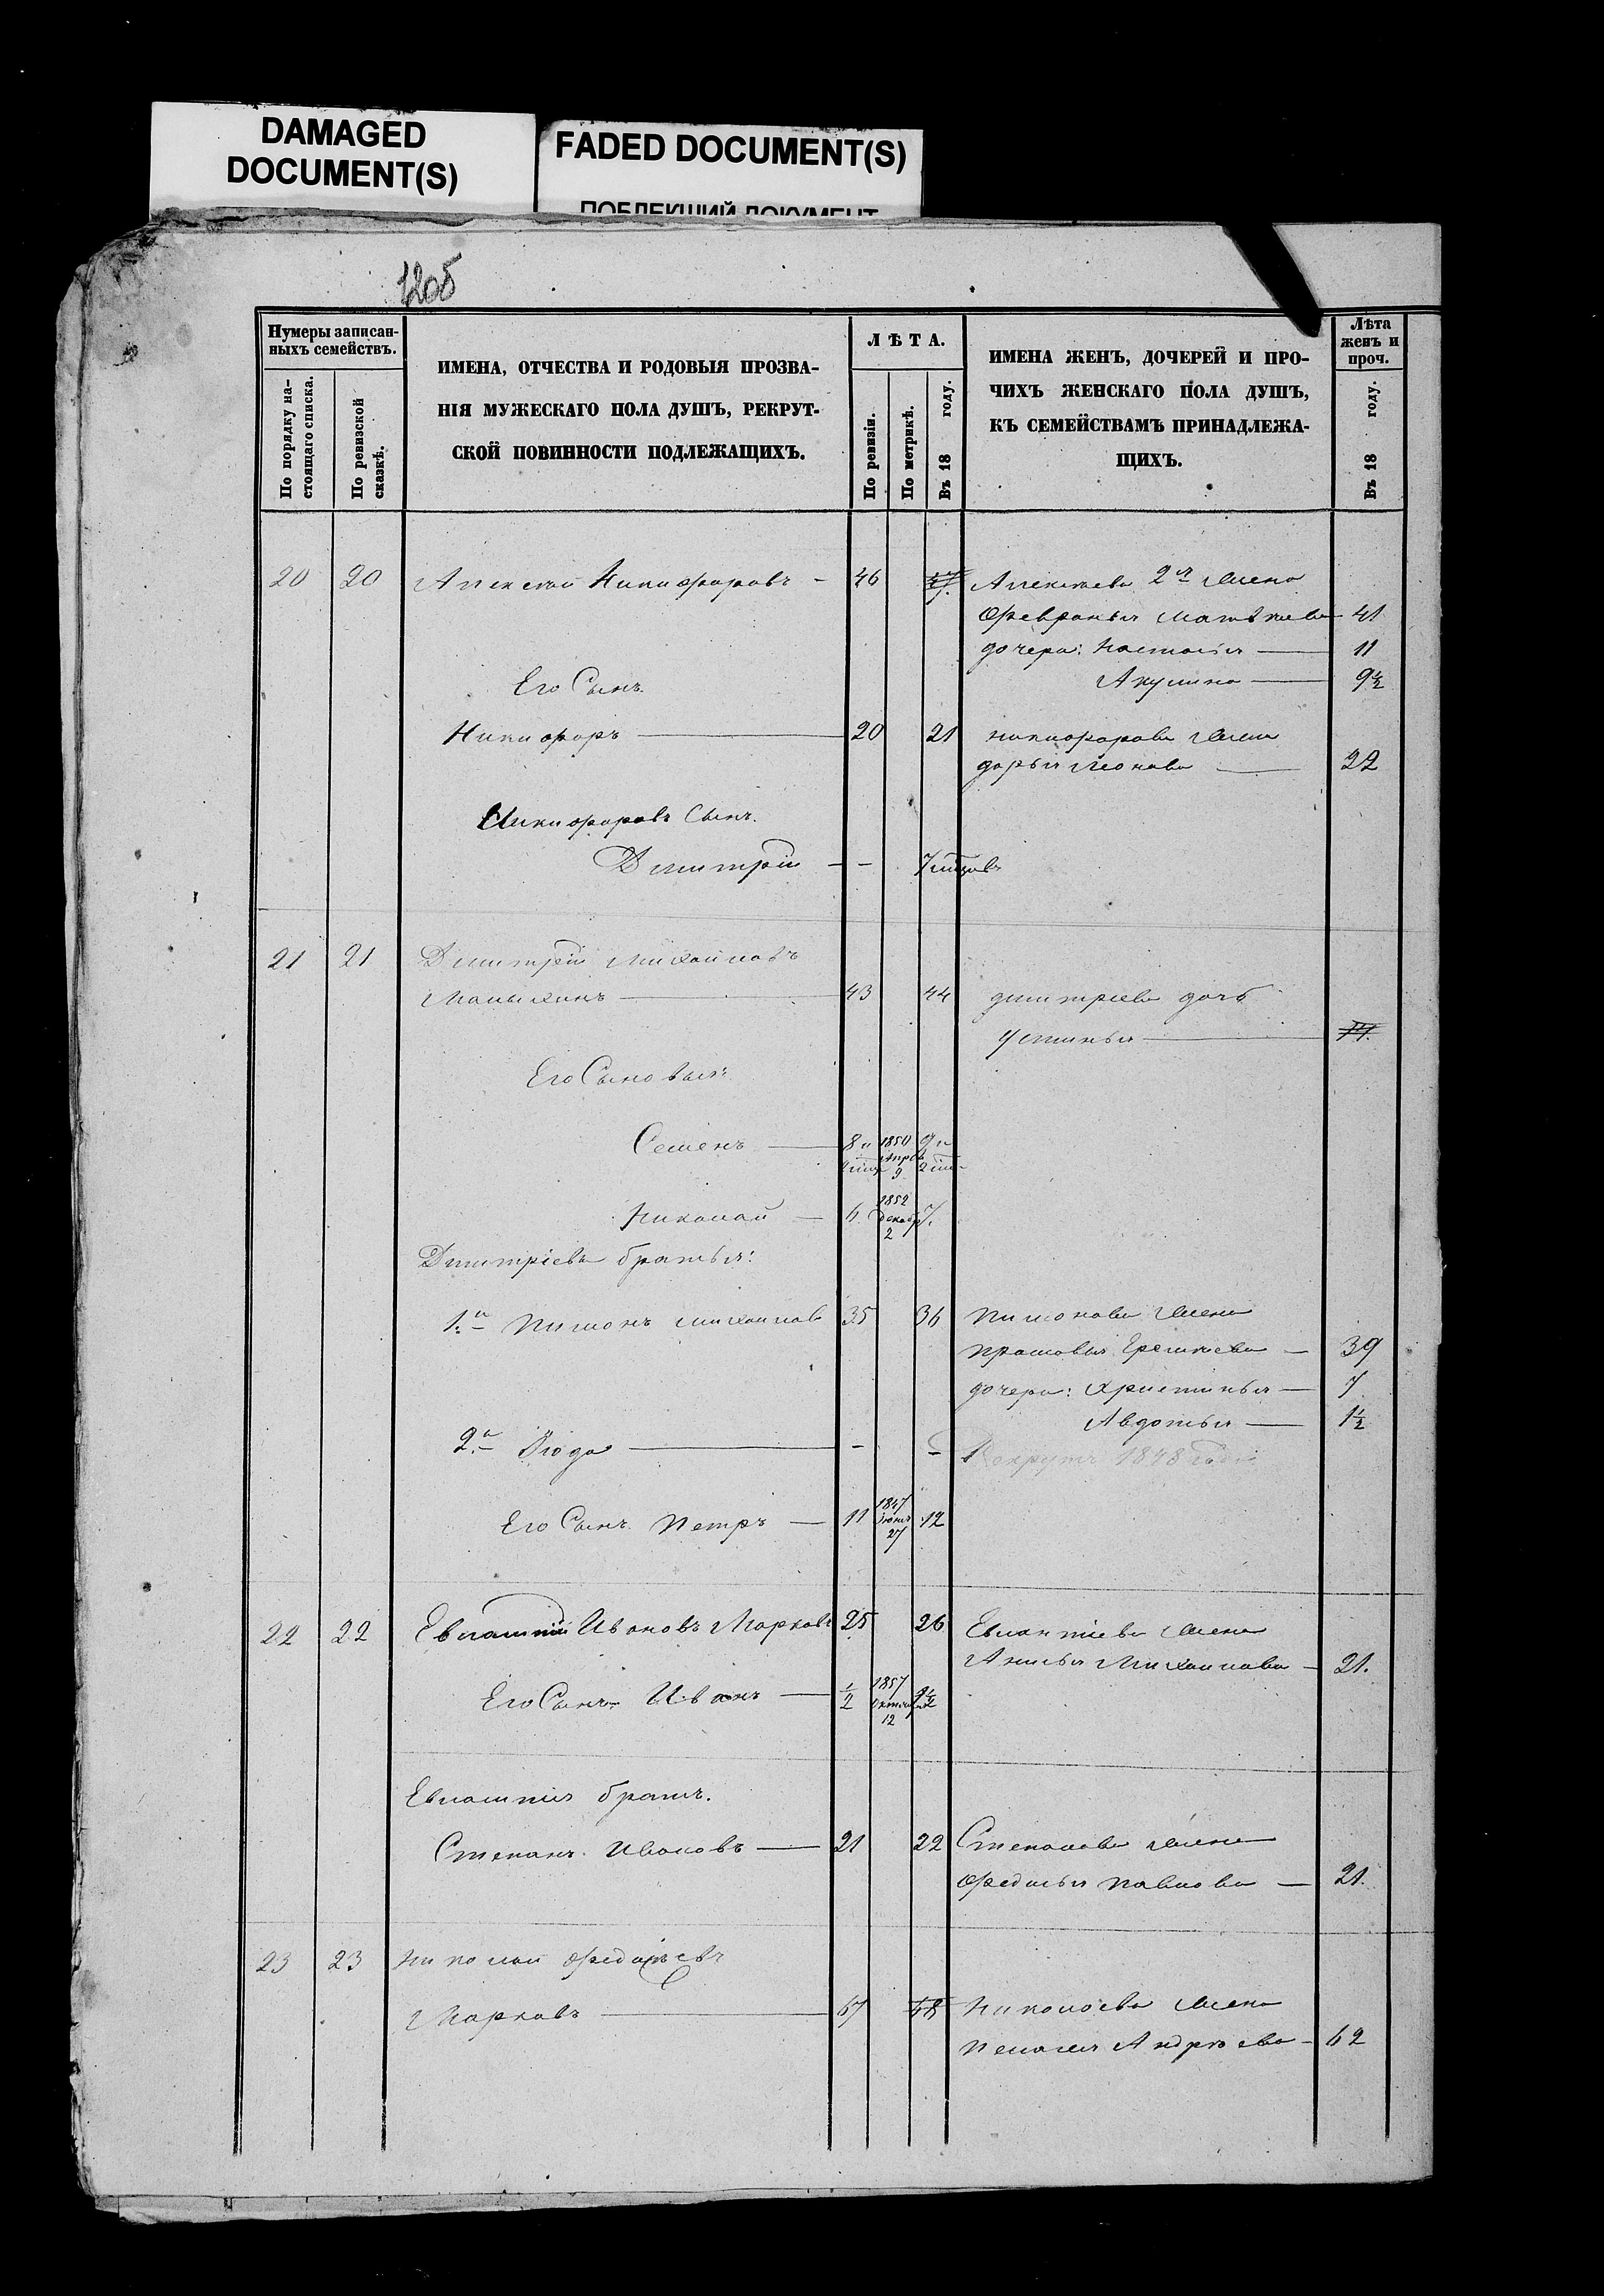 DAMAGED
DOCUMENT(S)
FADED DOCUMENT(S)
ПОБЛЕКШИЙ ДОКУМЕНТ
1205
Нумеры записан-
ныхъ семействъ.
По порядку на-
стоящаго списка.
По ревизской
сказкѣ.
ИМЕНА, ОТЧЕСТВА И РОДОВЫЯ ПРОЗВА-
НІЯ МУЖЕСКАГО ПОЛА ДУШЪ, РЕКРУТ-
СКОЙ ПОВИННОСТИ ПОДЛЕЖАЩИХЪ.
ЛѢТА.
По ревизіи.
По метрикѣ.
Въ 18 году.
ИМЕНА ЖЕНЪ, ДОЧЕРЕЙ И ПРО-
ЧИХЪ ЖЕНСКАГО ПОЛА ДУШЪ,
КЪ СЕМЕЙСТВАМЪ ПРИНАДЛЕЖА-
ЩИХЪ.
Лѣта
женъ и
проч.
Въ 18 году.
20 20 Алексѣй Никифоровъ - 46 47. Алексѣева 2я жена
Февранья Матвѣева 41
дочери: Настасія — 11
Его Сынъ. Акулина — 9½
Никифоръ — 20 21 Никифорова жена
Дарья Леонова — 22
Никифоровъ Сынъ.
Дмитрій - - 7 мѣсцовъ
21 21 Дмитрій Михайловъ
43 44 Дмитріева дочь
Устинья —
Его Сыновья:
Семенъ — 8 и 1850 9 и
Апрѣ
9
Николай — 6 1852 7.
Декабр
2
Дмитріева братья:
1й Пимонъ Михайлов 35 36 Пимонова жена
Прасковья Еремѣева — 39
дочери: Христинья — 7
Авдотья — 1½
2й Іюда — - - Рекрутъ 1848 года
Его Сынъ Петръ — 11 1847 12
Іюня
27
22 22 Евлампій Ивановъ Марковъ 25 26 Евлампіева жена
Анисья Михайлова - 21.
Его Сынъ Иванъ — ½ 1857
12
Евлампія братъ.
Степанъ Ивановъ — 21 22 Степанова жена
Федосья Павлова — 21.
23 23 Николай
Марковъ — 67 68 Николаева жена
Пелагея Андрѣева - 62